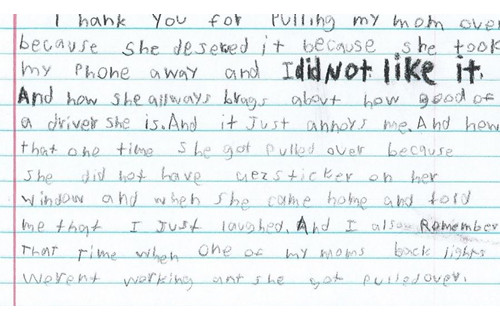 I hank you for Pulling my mom over
because she desered it because she took
my Phone away and I did Not like it.
And how she allways brags about how good of
a driver she is. And it Just annoys me. And how
that one time she got Pulled over because
she did not have  sticker on her
window and when she came home and told
me that I Just laughed. And I also Remember
That Time when one of my moms back lights
werent working ant she got Pulled over.